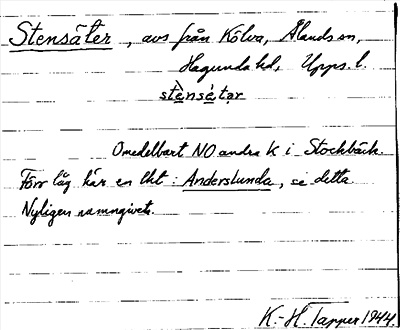 Stensäter, avs från Kölva, Ålands sn,
Hagunda hd, Upps. l.
stènsétạr
Omedelbart NO andra k i Stockbäck.
Förr låg här en lht: Anderslunda, se detta.
Nyligen namngivet.
K.-H. Tapper 1944.